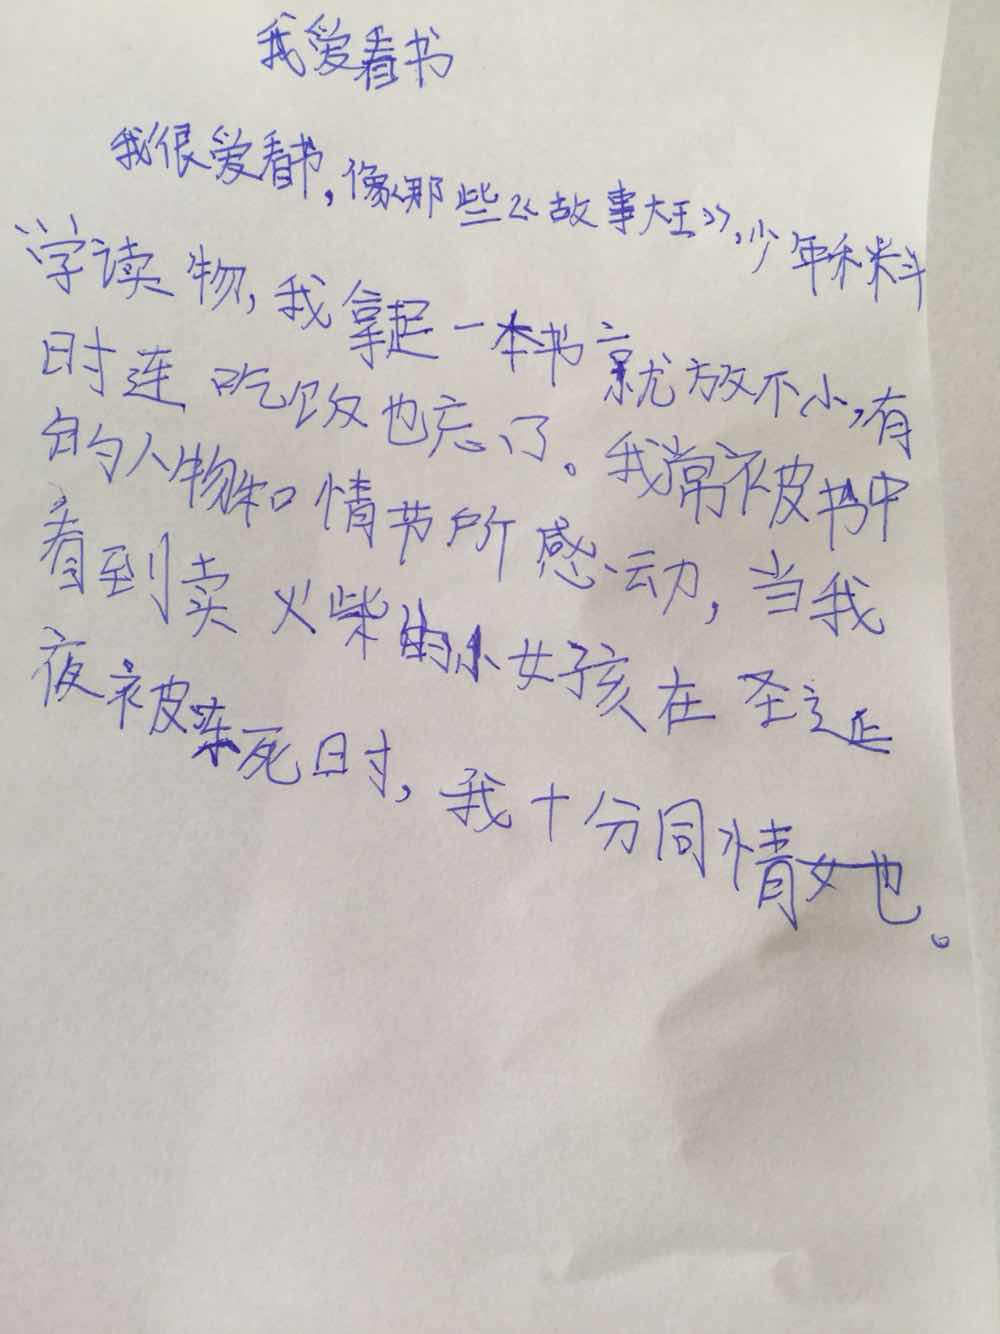 我爱看书
我很爱看书，像那些《故事大王》，少年科
学读物，我拿起一本书就放不小，有
时连吃饭也忘了。我常被书中
的人物和情节所感动，当我
看到卖火柴的小女孩在圣
夜被冻死时，我十分同情她。